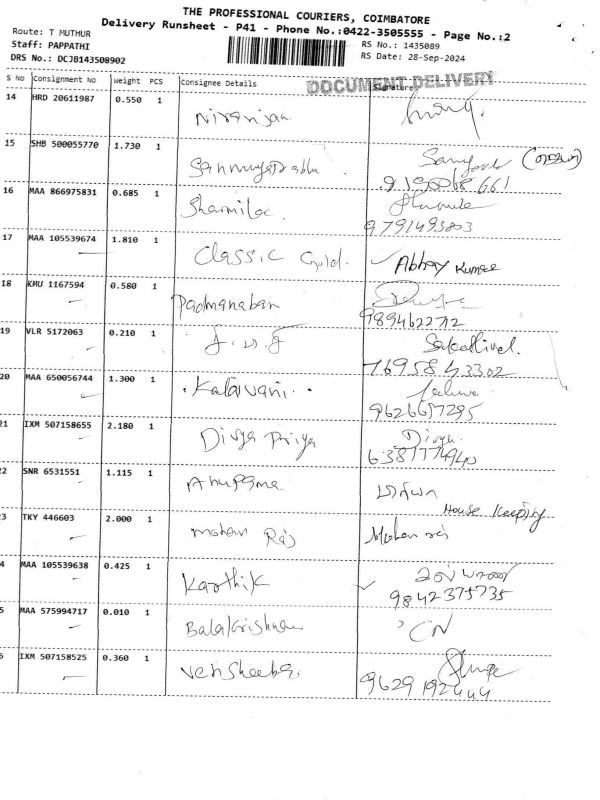 THE PROFESSIONAL COURIERS, COIMBATORE
Delivery Runsheet - P41 - Phone No.:0422-3505555 - Page No.:2
Route: T MUTHUR
Staff: PAPPATHI
RS No.: 1435089
DRS No.: DCJB143508902
RS Date: 28-Sep-2024
DOCUMENT DELIVERY
S No Consignment No Weight PCS Consignee Details Signature
14 HRD 20611987 0.550 1 Niranjan
15 SHB 500055770 1.730 1
16 MAA 866975831 0.685 1 Sharmila
9791493803
17 MAA 105539674 1.810 1 Classic Gold. Abhay Kumar
18 KMU 1167594 0.580 1 Padmanaban
9894622712
19 VLR 5172063 0.210 1
76958 43302
20 MAA 650056744 1.300 1 Kalaivani
9626697295
21 IXM 507158655 2.180 1 Divya Priya Divya
22 SNR 6531551 1.115 1 Anupama
House Keeping
23 TKY 446603 2.000 1 mohan Raj Mohan raj
24 MAA 105539638 0.425 1 Karthik
9842375735
25 MAA 575994717 0.010 1 Balakrishnan CN
26 IXM 507158525 0.360 1
9629192444